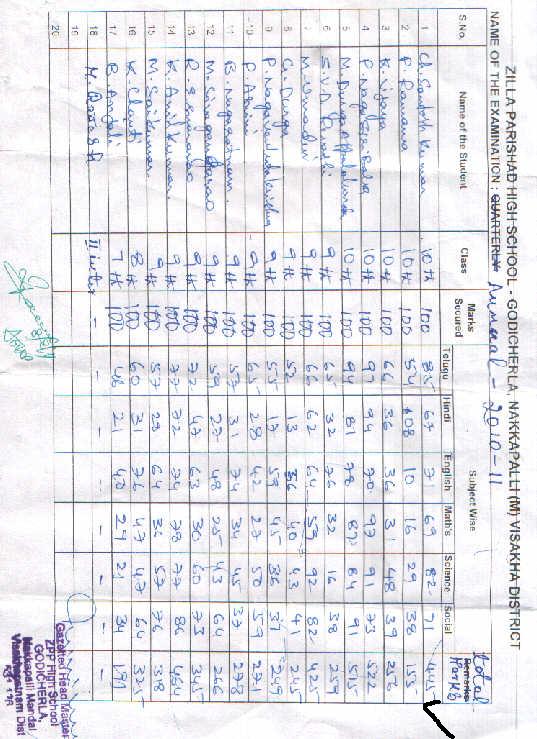 ZILLA PARISHAD HIGH SCHOOL - GODICHERLA, NAKKAPALLI (M) VISAKHA DISTRICT
NAME OF THE EXAMINATION : QUARTERLY Annual - 2010-11
S.No. Name of the Student Class Marks Secured Subject Wise Total Remarks Marks
Telugu Hindi English Math's Science Social
1 Ch. Santosh Kumar 10th 100 85 67 71 69 82 71 445
2 P. Ramana 10th 100 54 08 10 16 29 38 155
3 K. Vijaya 10th 100 66 36 36 31 48 39 256
4 P. Naga Sesh Babu 10th 100 97 94 70 97 91 73 522
5 M. Durga 10th 100 94 81 78 87 84 91 515
6 S.V.D. 9th 100 65 32 76 32 16 38 259
7 M. Umadevi 9th 100 66 62 64 59 92 82 425
8 Ch. Durga 9th 100 52 13 56 40 43 41 245
9 P. Naga 9th 100 55 17 59 45 36 37 249
10 P. 9th 100 65 28 42 27 50 59 271
11 B. Nagaratnam 9th 100 57 31 74 34 45 37 278
12 M. Sivaganga Rao 9th 100 59 27 48 25 43 64 266
13 R. 9th 100 72 47 63 30 60 73 345
14 K. Anil Kumar 9th 100 77 72 74 78 77 86 464
15 M. Sai Kumar 9th 100 57 29 64 36 53 76
16 K. Chanti 8th 100 60 31 76 47 47 64 325
17 B. Anjali 7th 100 48 21 40 27 21 34 191
18 M. II inter - - - - - - - -
19
20
Gazetted Head Master
ZPP High School
GODICHERLA,
Nakkapalli Mandal
Visakhapatnam Dist